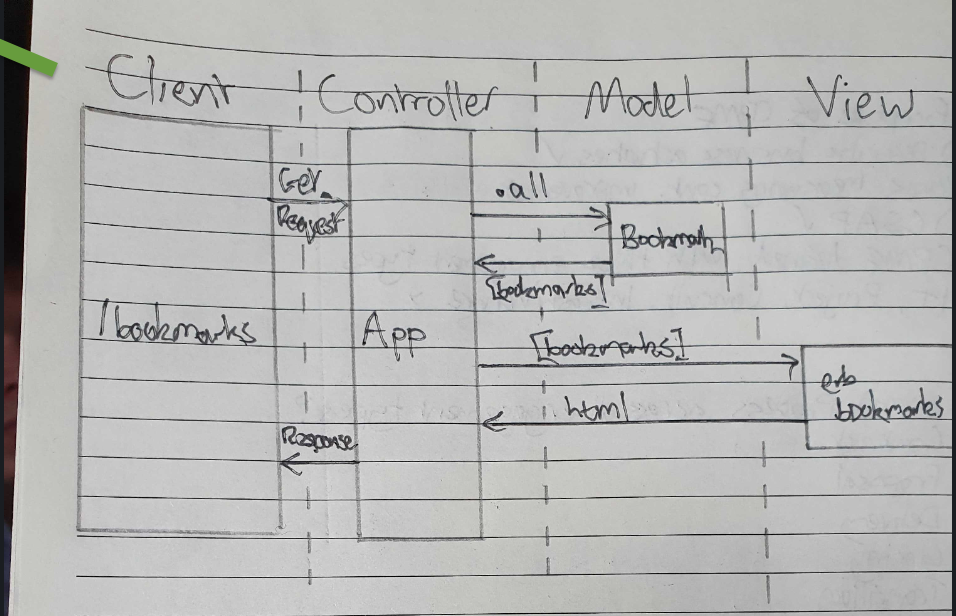 Client Controller Model View
Get
Request
.all
Bookmark
[bookmarks]
/bookmarks
App
[bookmarks]
erb
:bookmarks
html
Response